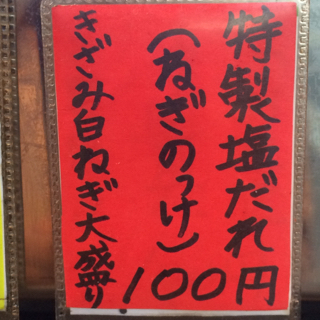 特製塩だれ
(ねぎのっけ)
きざみ白ねぎ大盛り
100円